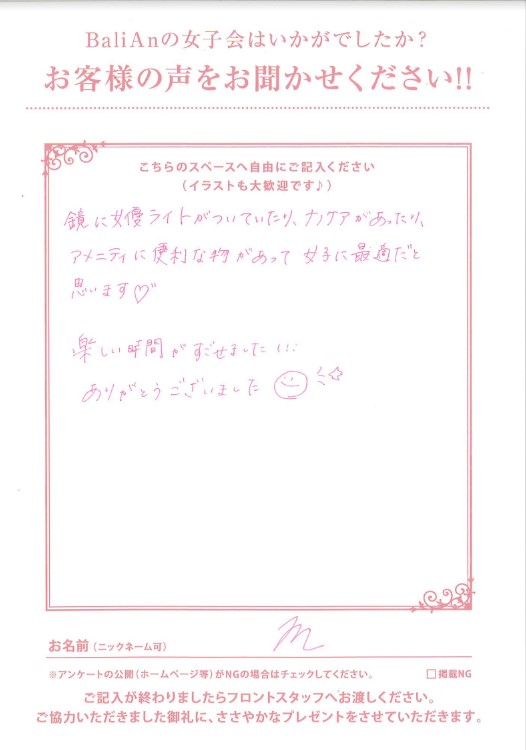 BaliAnの女子会はいかがでしたか?
お客様の声をお聞かせください!!
こちらのスペースへ自由にご記入ください
(イラストも大歓迎です♪)
鏡に女優ライトがついていたり、ナノケアがあったり、
アメニティに便利な物があって 女子に最適だと
思います♡
楽しい時間がすごせました!!!
ありがとうございました
お名前(ニックネーム可)
※アンケートの公開(ホームページ等)がNGの場合はチェックしてください。 □掲載NG
ご記入が終わりましたらフロントスタッフへお渡しください。
ご協力いただきました御礼に、ささやかなプレゼントをさせていただきます。